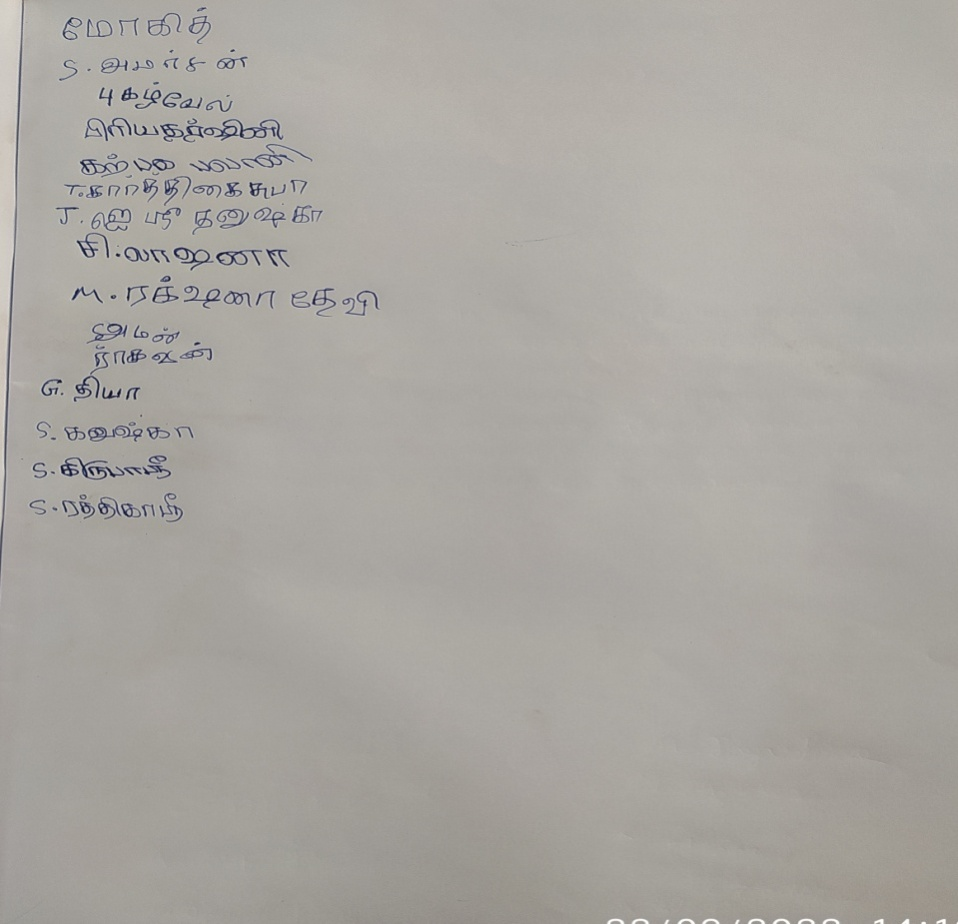 மோகித்
S. அமர்சன்
புகழ்வேல்
பிரியதர்ஷினி
T. கார்த்திகைசுபா
J. ஜெ ஸ்ரீ தனுஷ்கா
சி. லாஷனா
M. ரக்ஷனா தேவி
ராகவன்
G. தியா
S. கனுஷ்கா
S. கிருபாஸ்ரீ
S. ரத்திகாஸ்ரீ